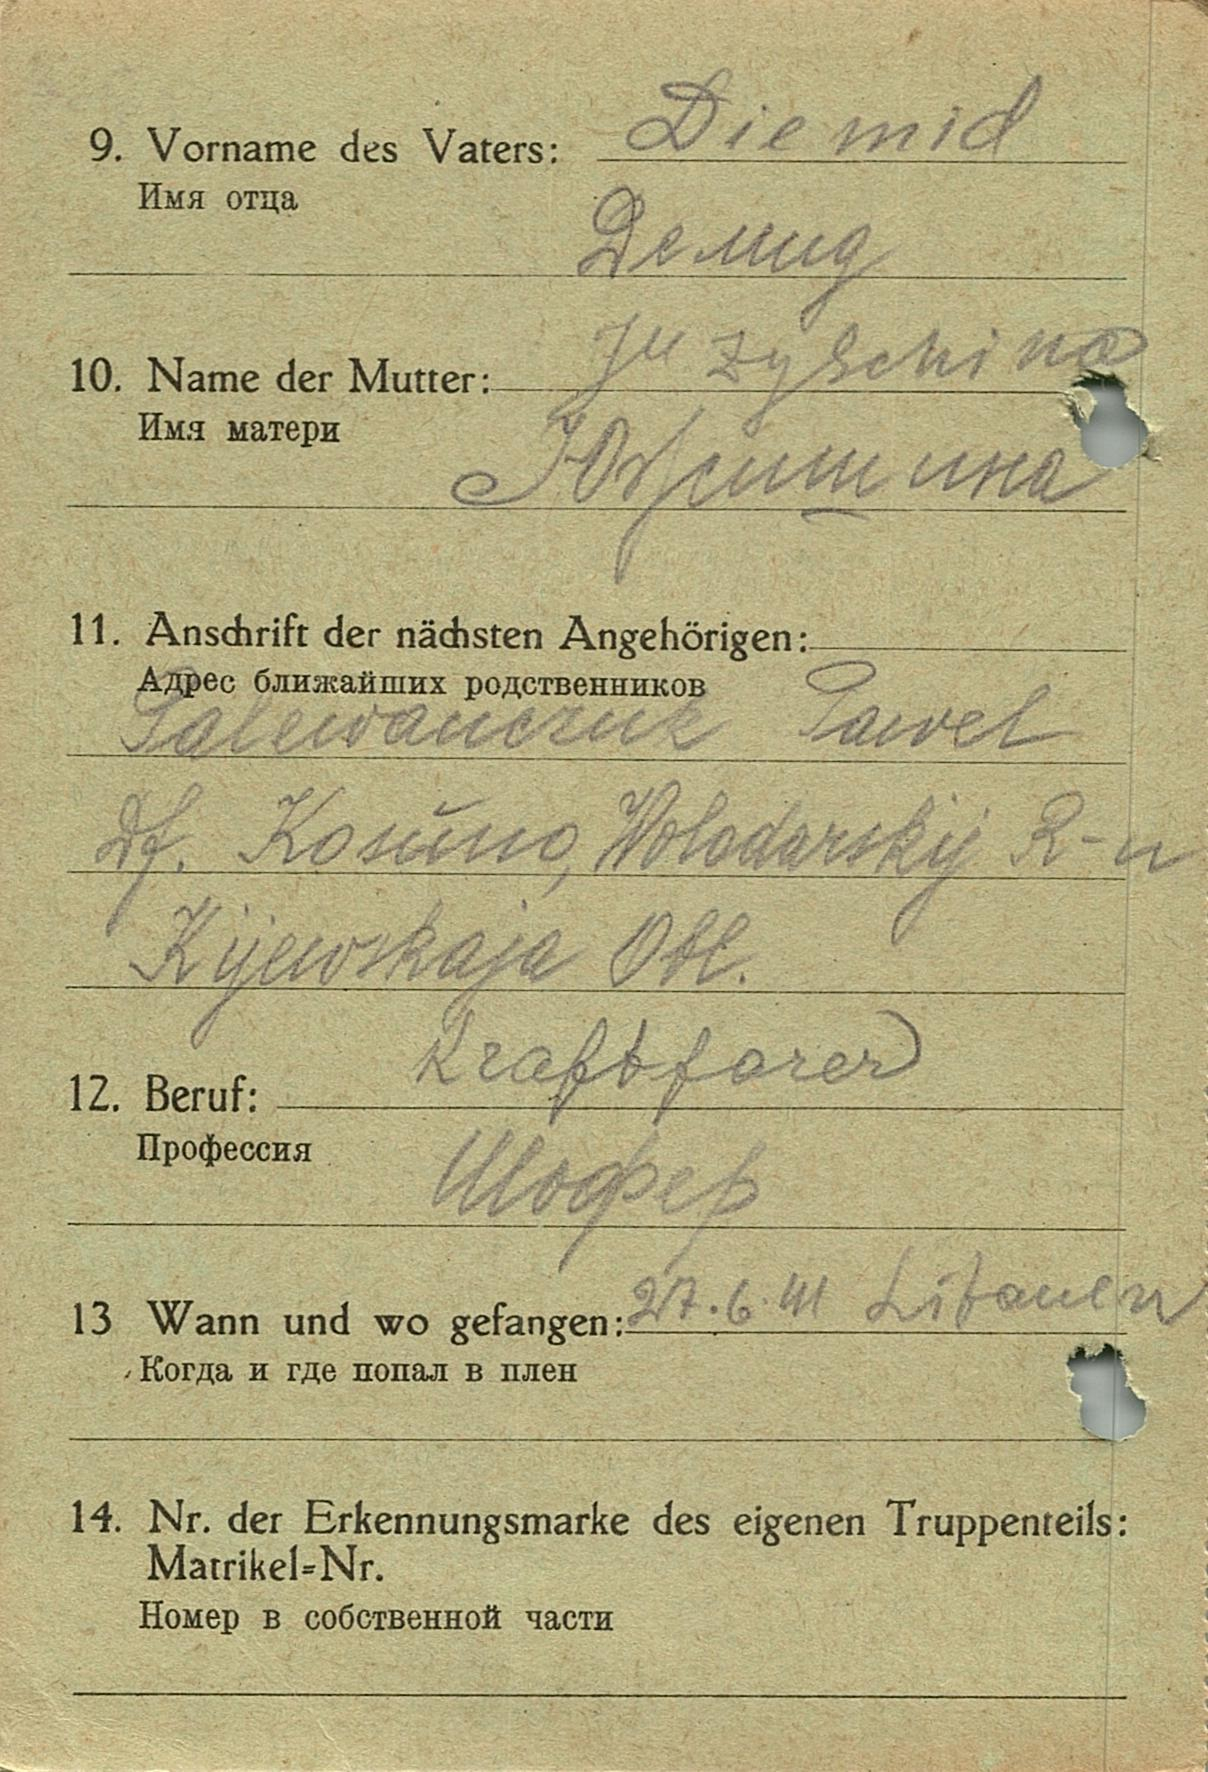 9. Vorname des Vaters: Diemid
Имя отца
Демид
10. Name der Mutter: Juzyschina
Имя матери
11. Anschrift der nächsten Angehörigen:
Адрес ближайших родственников
Pawel
Df. Wolodarskij R-n
Kijewskaja Obl.
12. Beruf: Kraftfarer
Профессия
Шофер
13 Wann und wo gefangen: 27.6.41 Litauen
Когда и где попал в плен
14. Nr. der Erkennungsmarke des eigenen Truppenteils:
Matrikel=Nr.
Номер в собственной части